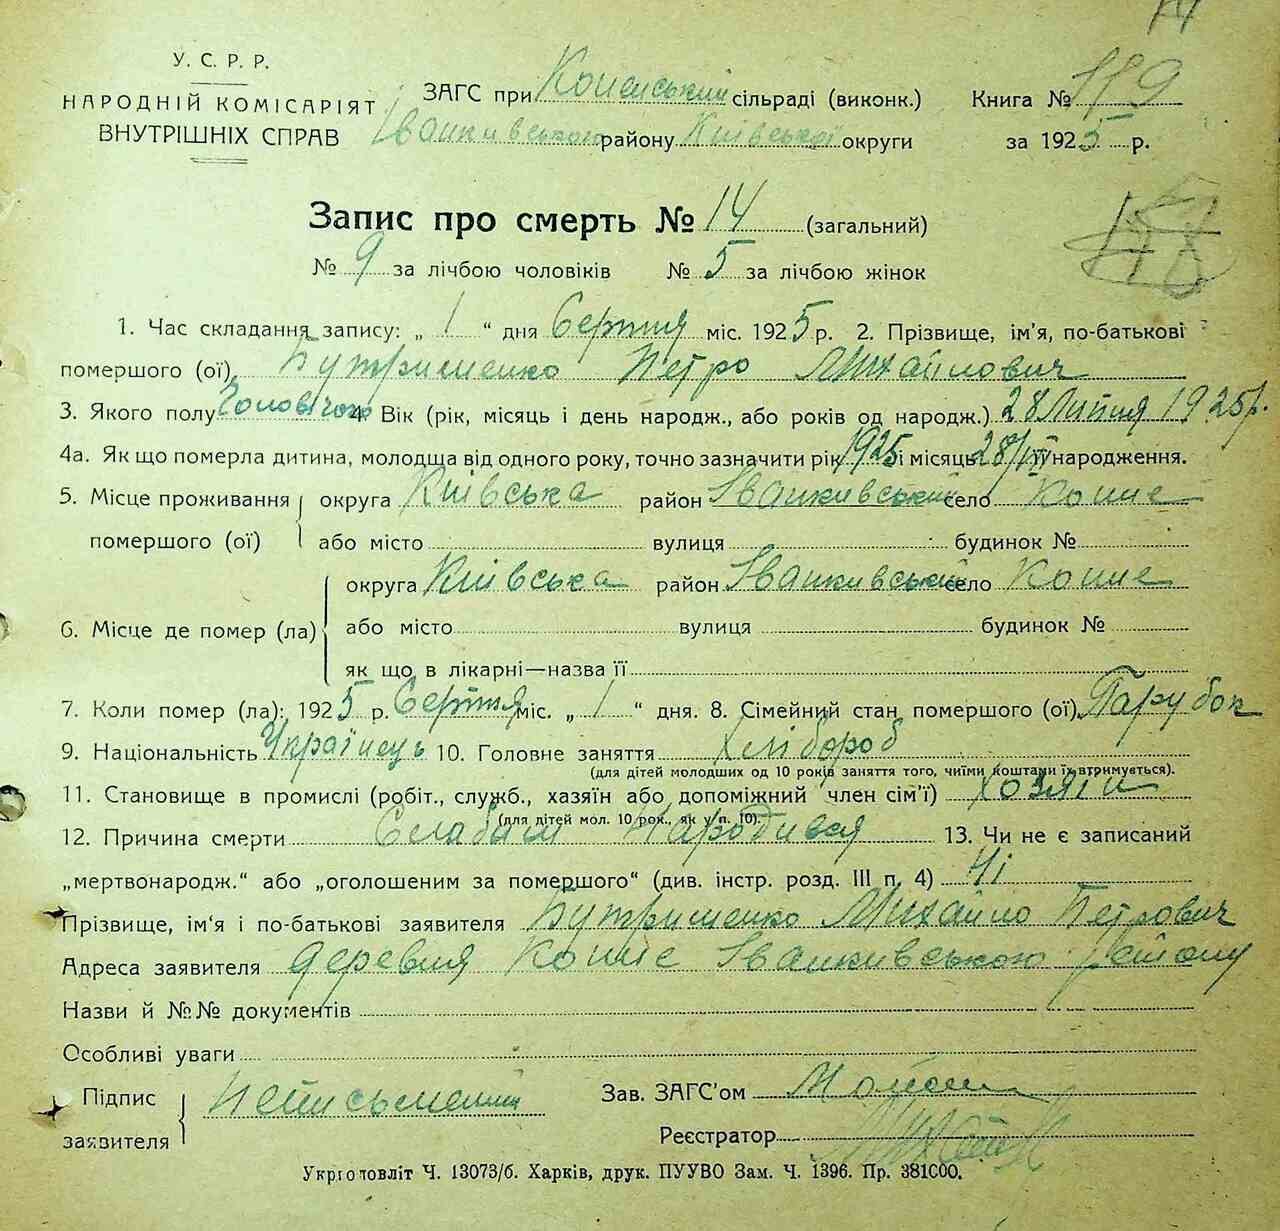 У. С. Р. Р.
НАРОДНІЙ КОМІСАРІЯТ
ВНУТРІШНІХ СПРАВ
ЗАГС при сільраді (виконк.)
Іванкивською району Київської округи
Книга № 119
за 1925 р.
Запис про смерть № 14 (загальний)
№ 9 за лічбою чоловіків № 5 за лічбою жінок
1. Час складання запису: „ 1 “ дня Серпня міс. 1925 р. 2. Прізвище, ім'я, по-батькові
помершого (ої) Бутрименко Петро Михайлович
3. Якого полу Чоловічого 4. Вік (рік, місяць і день народж., або років од народж.) 28 Липня 1925 р.
4а. Як що померла дитина, молодща від одного року, точно зазначити рік 1925 і місяць народження.
5. Місце проживання помершого (ої) округа Київська район Іванкивський село Копие
або місто вулиця будинок №
6. Місце де помер (ла) округа Київська район Іванкивський село Копие
або місто вулиця будинок №
як що в лікарні—назва її
7. Коли помер (ла): 1925 р. Серпня міс. „ 1 “ дня. 8. Сімейний стан помершого (ої) Парубок
9. Національність Українець 10. Головне заняття Хлібороб
(для дітей молодших од 10 років заняття того, чиїми коштами їх втримується).
11. Становище в промислі (робіт., служб., хазяїн або допоміжний член сім'ї) хозяїн
(для дітей мол. 10 рок., як у п. 10).
12. Причина смерти Слабим Народився 13. Чи не є записаний
„мертвонародж.“ або „оголошеним за помершого“ (див. інстр. розд. III п. 4) Ні
Прізвище, ім'я і по-батькові заявителя Бутрименко Михайло Петрович
Адреса заявителя деревня Копие Іванкивською району
Назви й №№ документів
Особливі уваги
Підпис заявителя Неписьменний
Зав. ЗАГС'ом
Реєстратор
Укрголовліт Ч. 13073/б. Харків, друк. ПУУВО Зам. Ч. 1396. Пр. 381000.